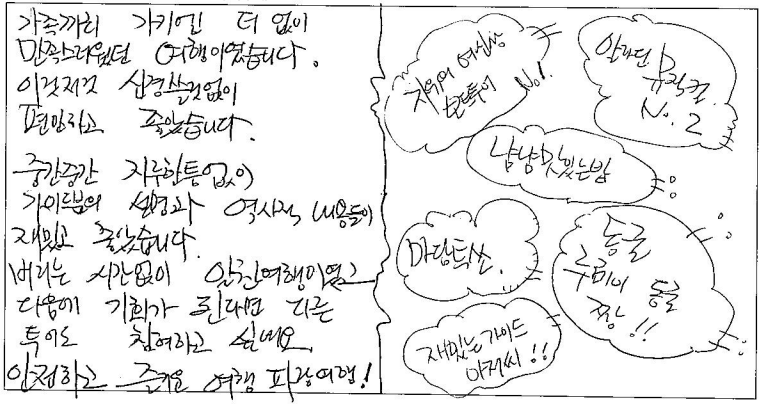 가족끼리 가기엔 더 없이
만족스러웠던 여행이었습니다.
이것저것 신경쓸것없이
편안하고 좋았습니다.
중간중간 지루한틈없이
가이드분의 설명과 역사적 내용들이
재밌고 좋았습니다.
버리는 시간없이 알찬여행이였고
다음에 기회가 된다면 다른
투어도 참여하고 싶네요
안전하고 즐거운 여행 파랑여행!
자유의 여신상
보트투어 No1.
알라딘
뮤지컬
No. 2
냠냠맛있는밥
마담투쏘.
동굴
구경이 동굴
짱!!
재밌는가이드
아저씨!!